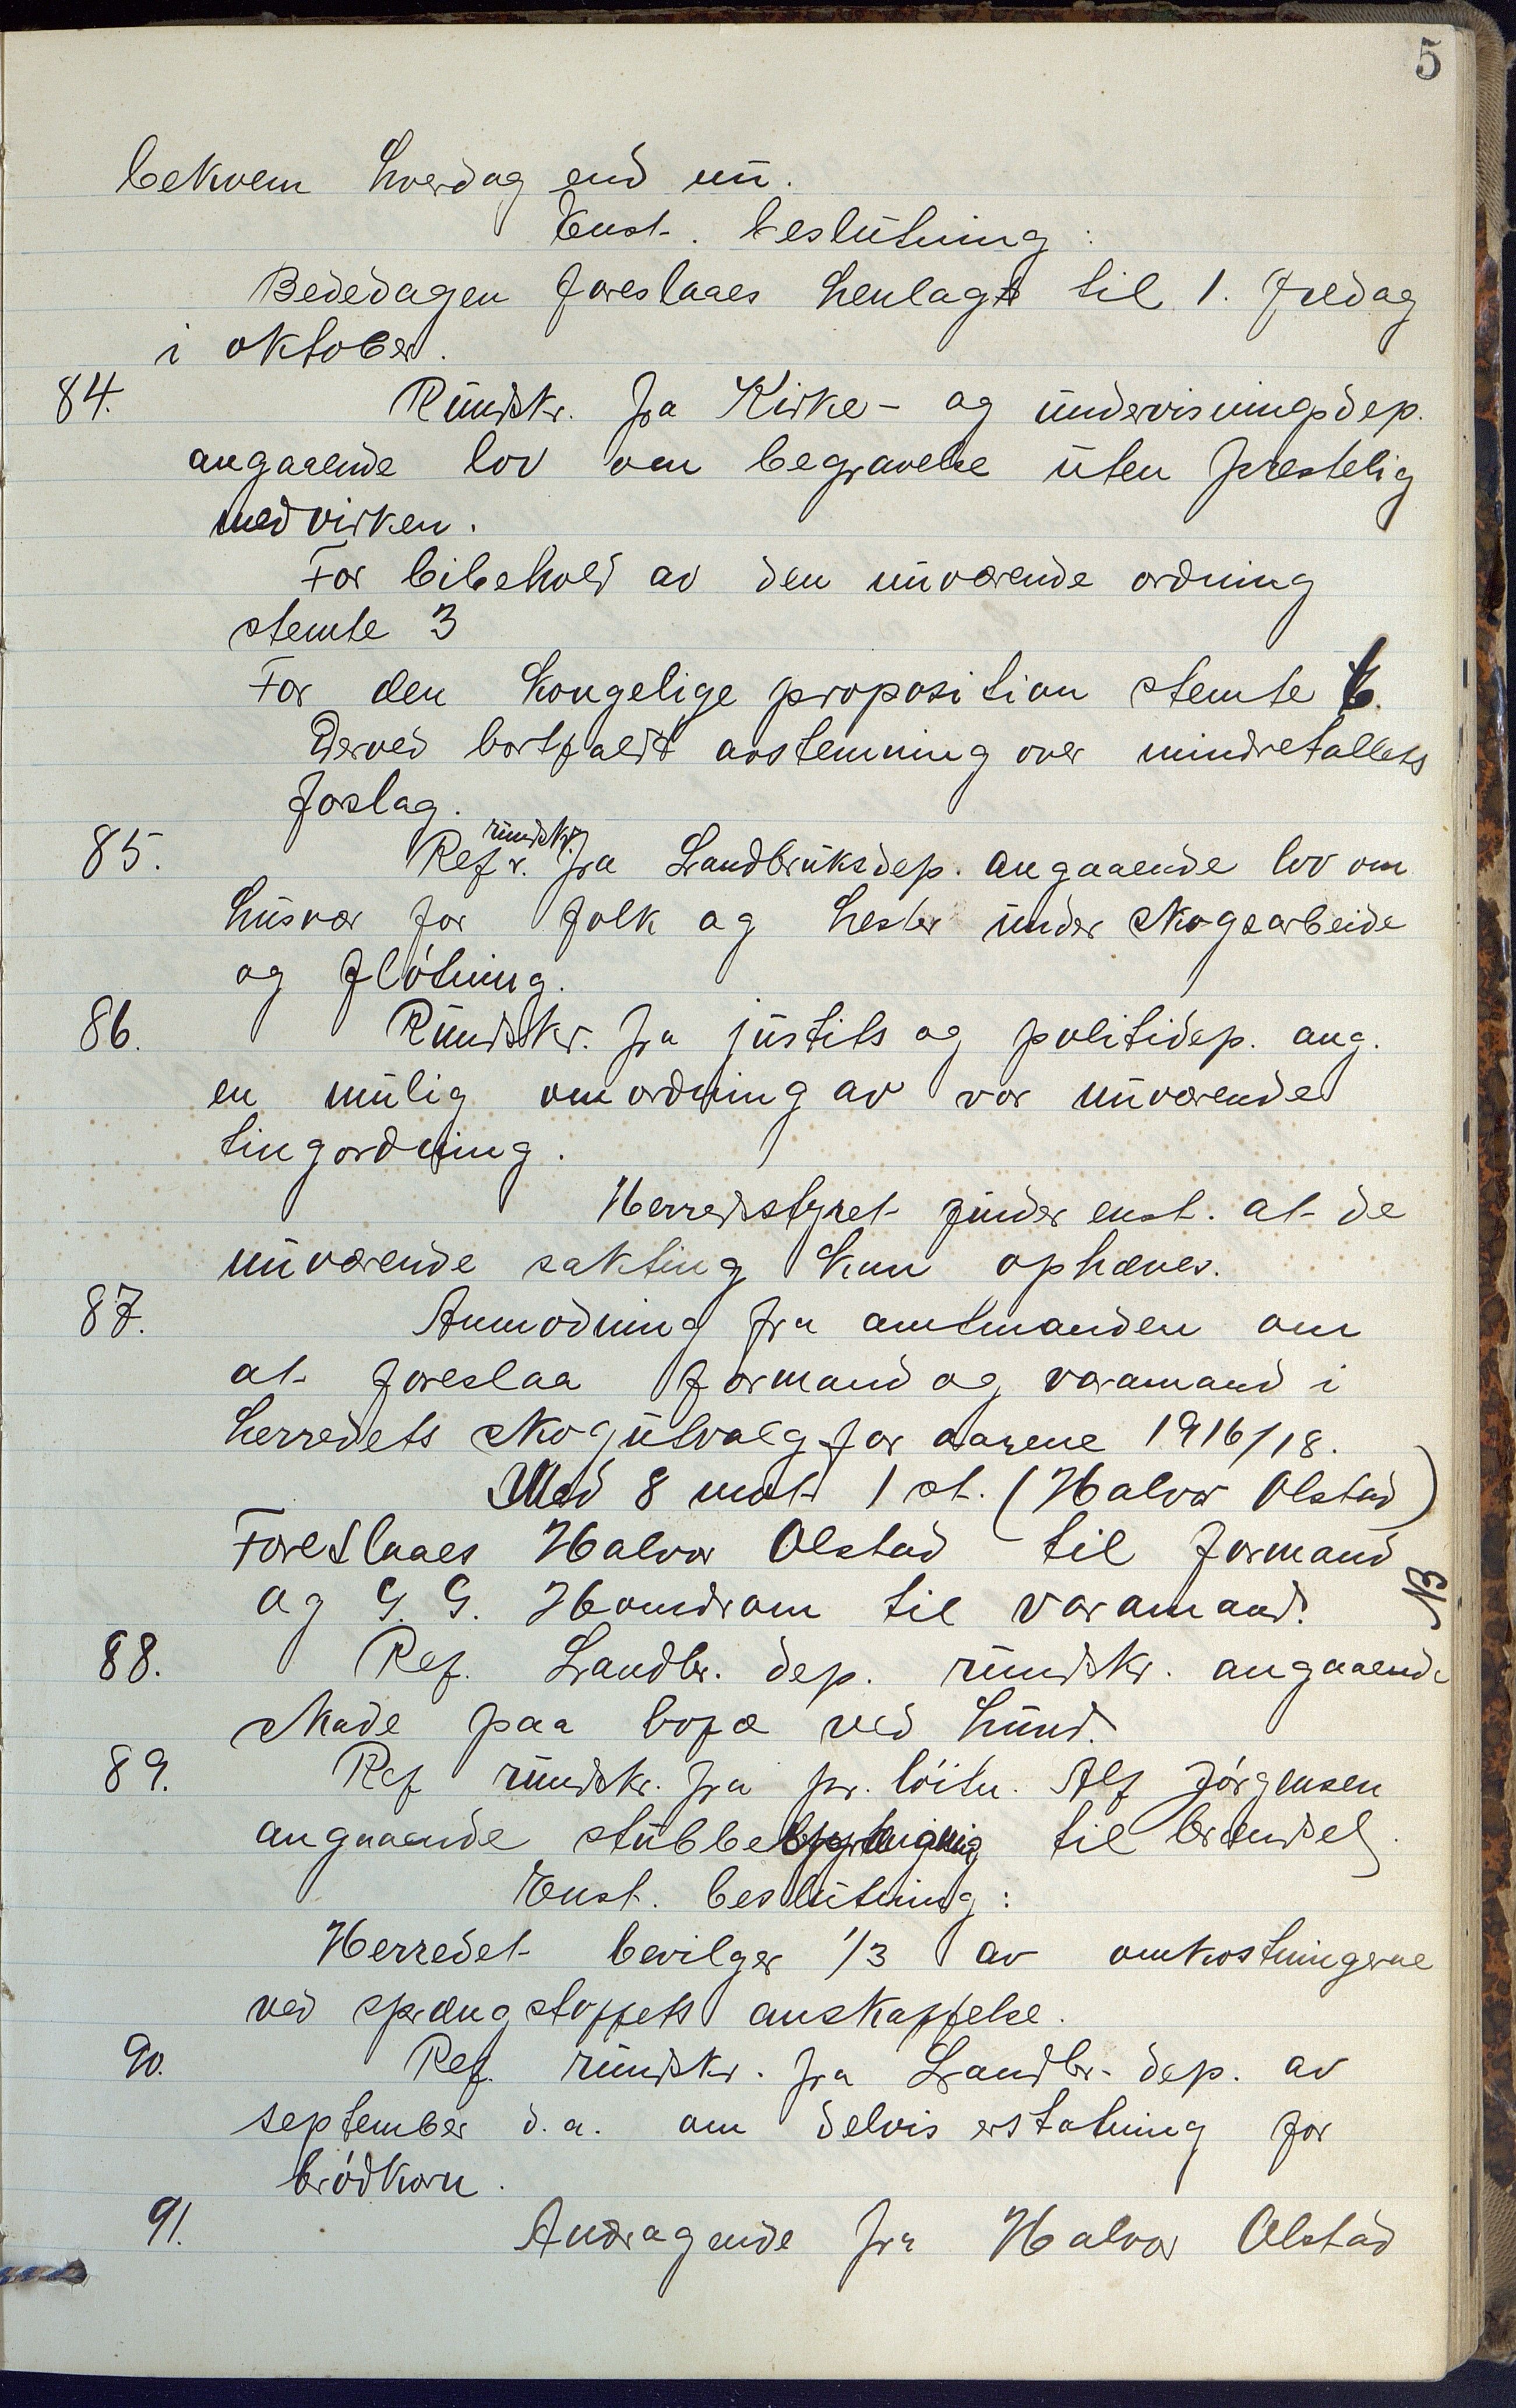 5
bekvem hverdag end nu.
Enst. beslutning:
Bededagen foreslaaes henlagt til 1. fredag
i oktober.
84. Rundskr. fra Kirke- og undervisningsdep.
angaaende lov om begravelse uten prestelig
medvirken.
For bibehold av den nuværende ordning
stemte 3
For den kongelige proposition stemte 6.
Derved bortfaldt avstemning over mindretallets
forslag.
85. Ref. rundskr. fra Landbruksdep. angaaende lov om
husvær for folk og hester under skogsarbeide
og fløtning.
86. Rundskr. fra justits og politidep. ang.
en mulig omordning av vor nuværende
tingordning.
Herredsstyret finder enst. at de
nuværende sakting kan ophæves.
87. Anmodning fra amtmanden om
at foreslaa formand og varamand i
herredets skogutvalg for aarene 1916/18.
Med 8 mot 1 st. (Halvor Olstad)
Foreslaaes Halvor Olstad til formand
og G. G. Homdrom til varamand. NB
88. Ref. Landbr. dep. rundskr. angaaende
skade paa bufæ ved hund.
89. Ref rundskr. fra pr. løitn. Alf Jørgensen
angaaende stubbe til brændsel.
Enst. beslutning:
Herredet bevilger 1/3 av omkostningerne
ved sprængstoffets anskaffelse.
90. Ref. rundskr. fra Landbr. dep. av
september d.a. om delvis erstatning for
brødkorn.
91. Andragende fra Halvor Olstad